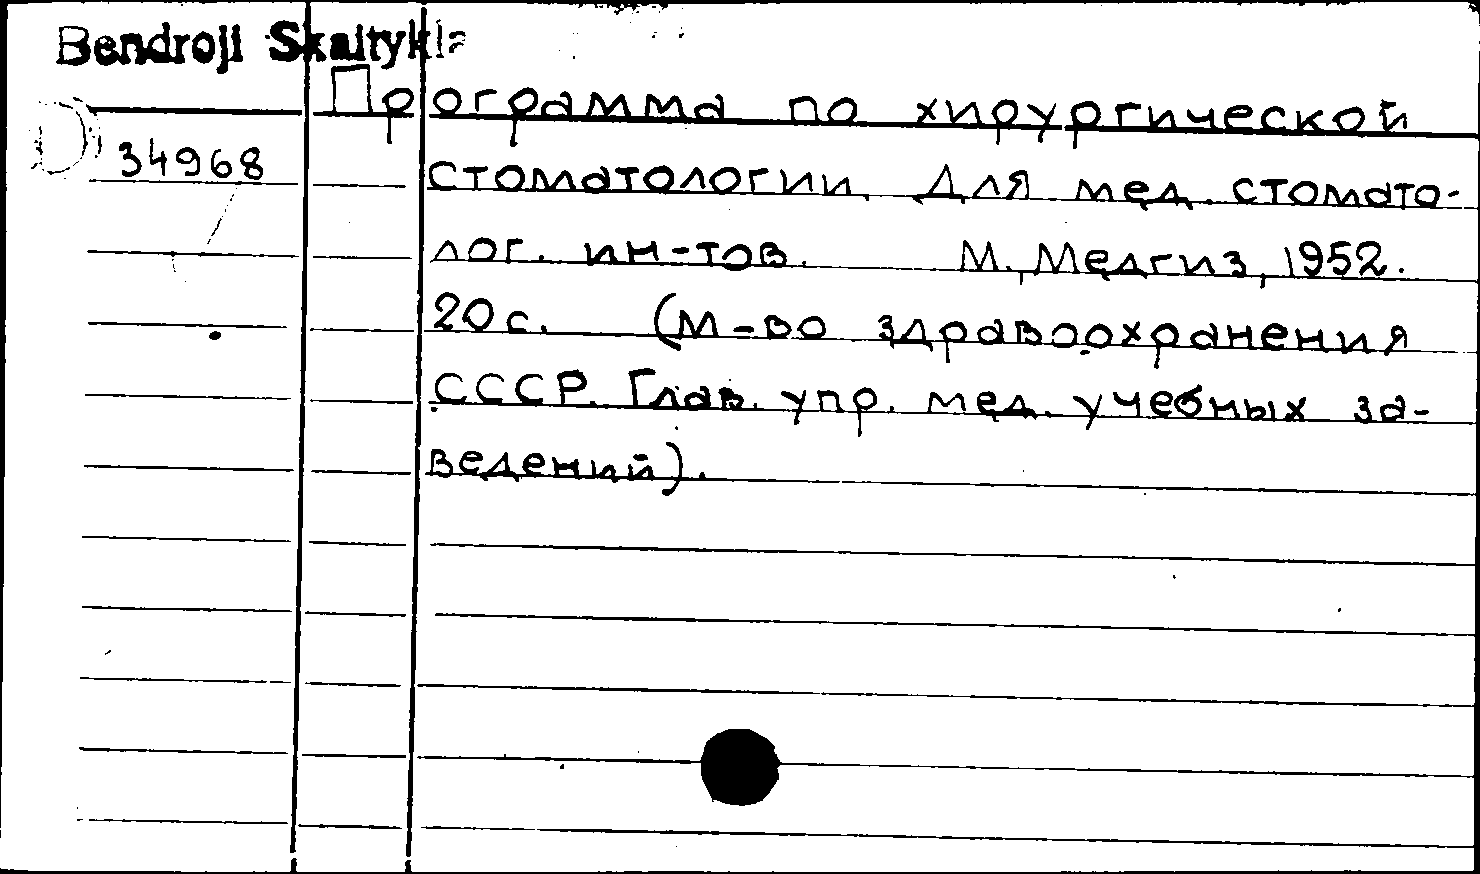 Bendroji Skaitykla
Программа по хирургической
D
34968
стоматологии. Для мед. стомато-
лог. ин-тов. М., Медгиз, 1952.
20 с. (М-во здравоохранения
СССР. Глав. упр. мед. учебных за-
ведений).